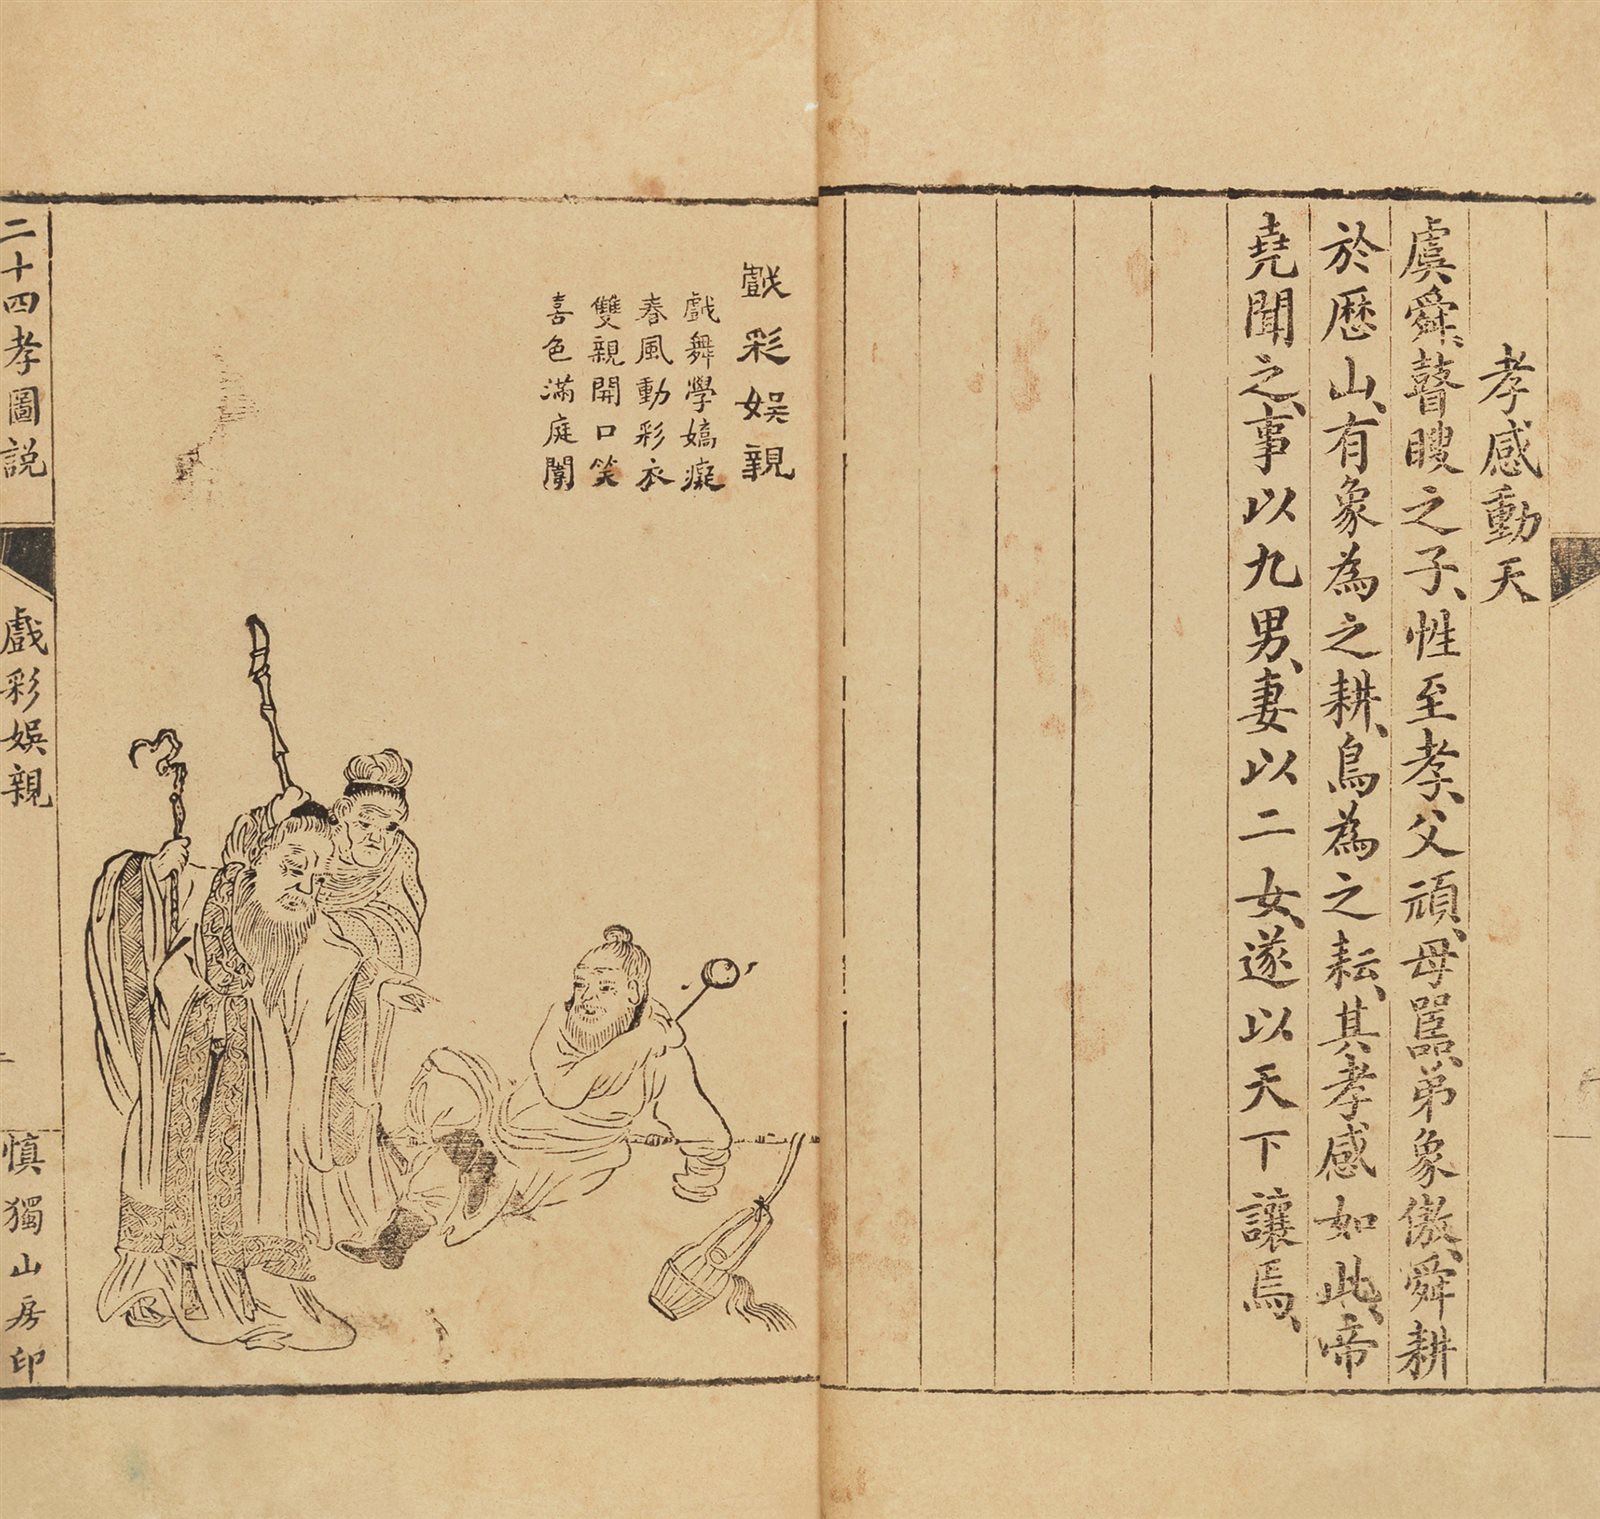 孝感動天
虞舜、瞽瞍之子、性至孝、父頑、母嚚、弟象傲、舜耕
於歷山、有象為之耕、鳥為之耘、其孝感如此、帝
堯聞之、事以九男、妻以二女、遂以天下讓焉、
戲彩娛親
戲舞學嬌癡
春風動彩衣
雙親開口笑
喜色滿庭闈
二十四孝圖説
戲彩娛親
慎獨山房印